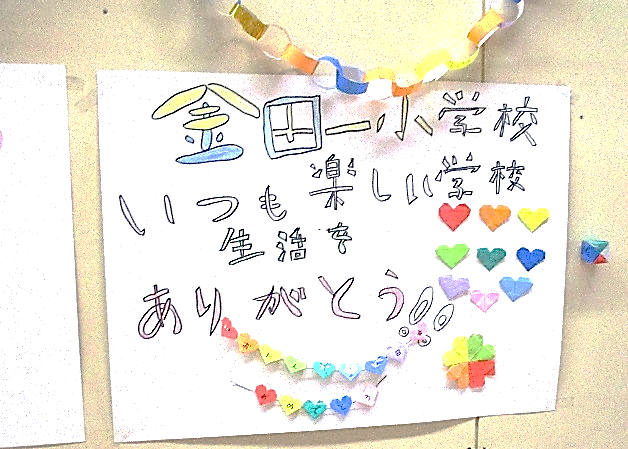 金田一小学校
いつも楽しい学校
生活を
ありがとう